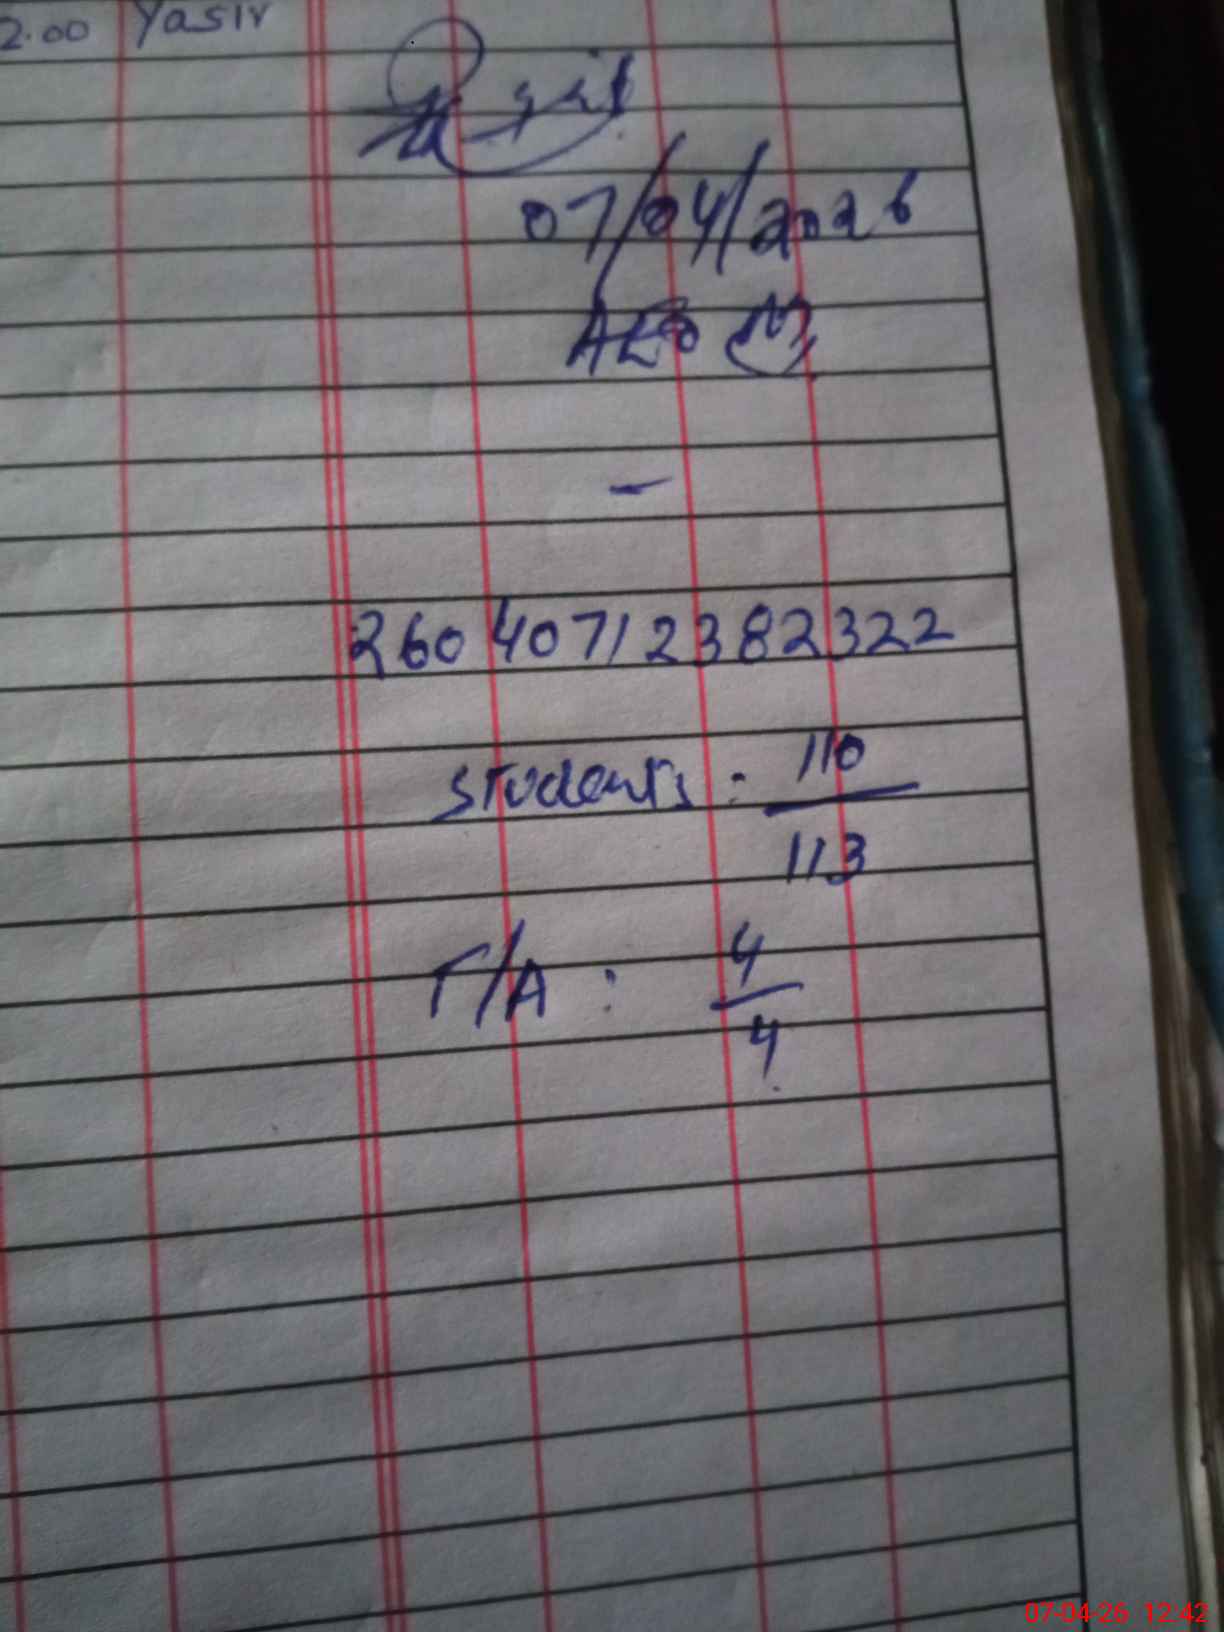 2.00 Yasir
07/04/2026
AEO (M)
-
26040712382322
Students : 110
113
T/A : 4
4
07-04-26 12:42